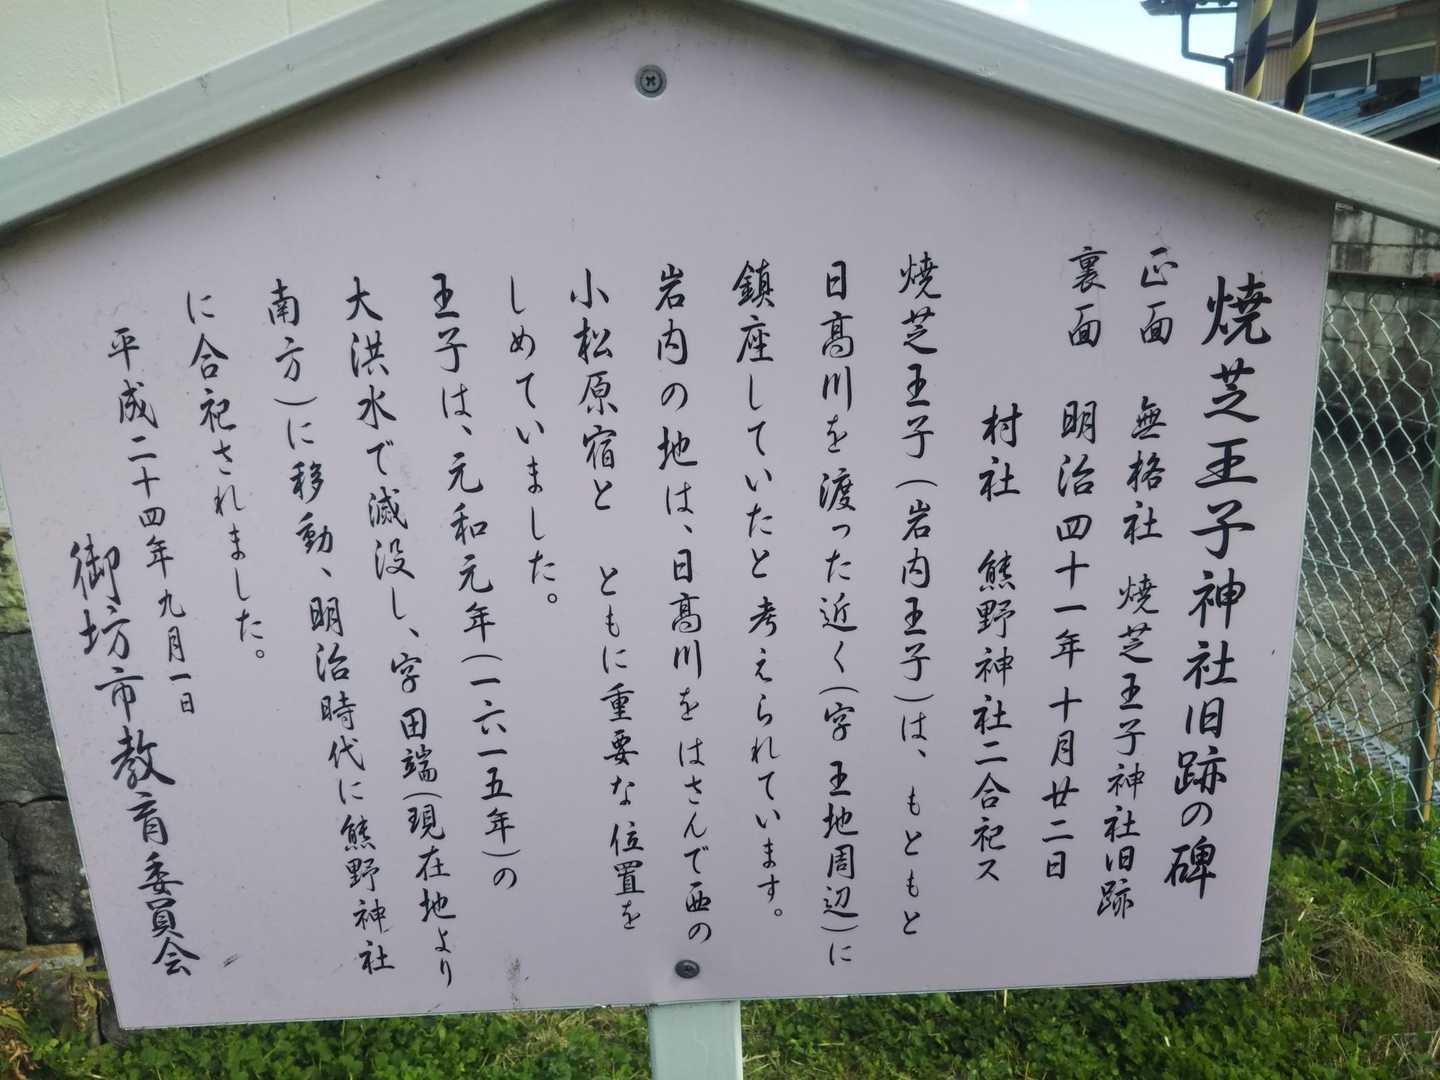 焼芝王子神社旧跡の碑
正面　無格社　焼芝王子神社旧跡
裏面　明治四十一年十月廿二日
村社　熊野神社ニ合祀ス
焼芝王子（岩内王子）は、もともと
日高川を渡った近く（字王地周辺）に
鎮座していたと考えられています。
岩内の地は、日高川をはさんで西の
小松原宿と　ともに重要な位置を
しめていました。
王子は、元和元年（一六一五年）の
大洪水で滅没し、字田端（現在地より
南方）に移動、明治時代に熊野神社
に合祀されました。
平成二十四年九月一日
御坊市教育委員会